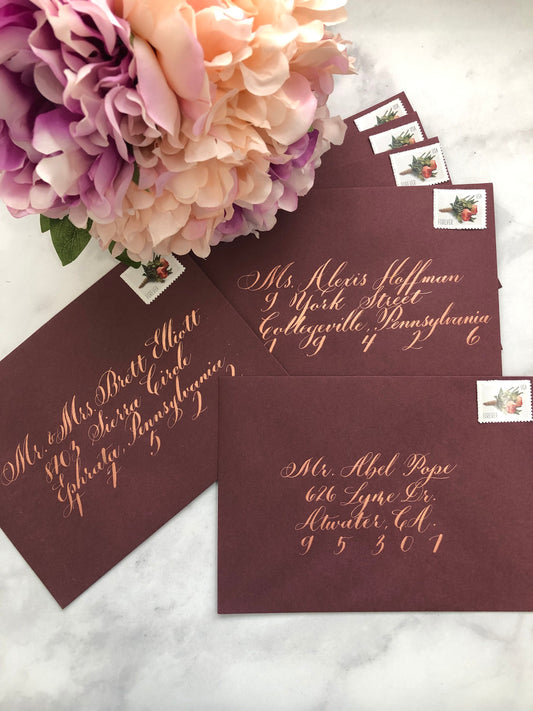 Ms. Alexis Hoffman
9 York Street
Collegeville, Pennsylvania
1 9 4 2 6
Mr. & Mrs. Brett Elliott
8403 Sierra Circle
Ephrata, Pennsylvania
1 7 5 2 2
Mr. Abel Pope
626 Lyme Dr.
Atwater, CA.
9 5 3 0 1
FOREVER
USA
FOREVER
USA